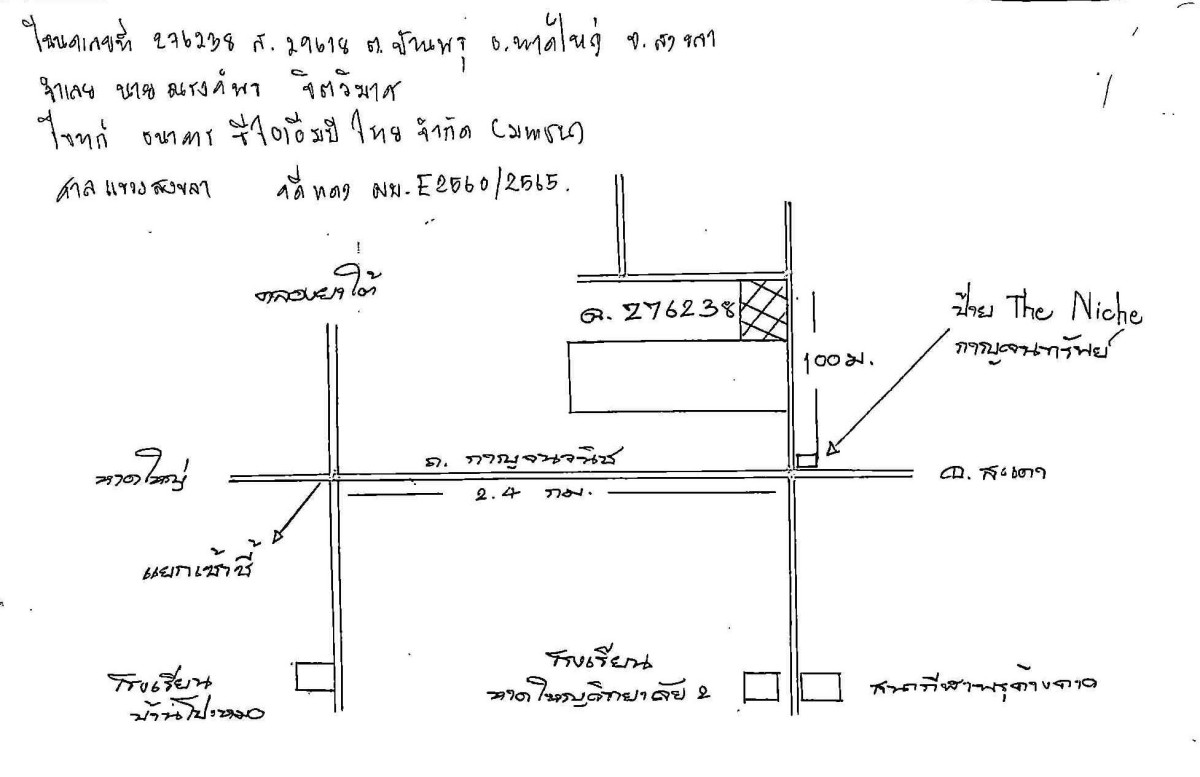 โฉนดเลขที่ 276238 ส. 29618 ต. บ้านพรุ อ. หาดใหญ่ จ. สงขลา
จำเลย นาย ณรงค์พร จิตวิมาศ
โจทก์ ธนาคาร ซีไอเอ็มบี ไทย จำกัด (มหาชน)
ศาลแขวงสงขลา คดีแดง ผบ. E2560/2565.
คลองยาใต้
ฉ. 276238
100 ม.
ป้าย The Niche
กาญจนทรัพย์
หาดใหญ่
ถ. กาญจนวนิช
2.4 กม.
อ. สะเดา
แยกเช้าชี้
โรงเรียน
บ้านโปะหมอ
โรงเรียน
หาดใหญ่วิทยาลัย 2
สนามกีฬาพรุค้างคาว